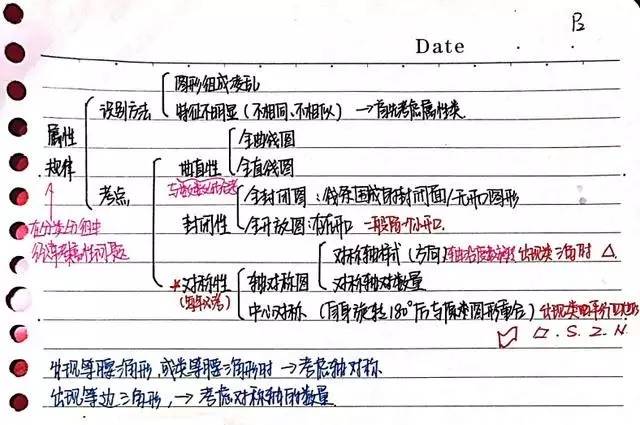 P2
Date
图形组成凌乱
识别方法
特征不明显(不相同、不相似) →首先考虑属性类
属性
规律
全曲线图
曲直性
全直线图
考点
全封闭图:线条围成的封闭面/无开口图形
封闭性
全开放图:有开口 一般留一个小开口
对称轴样式(方向) 出现类三角时 △
轴对称图
对称性
对称轴对数量
(每年必考)
中心对称 (自身旋转180°后与原来图形重合) 出现类平行四边形
▱ . S . Z . N .
出现等腰三角形,或类等腰三角形时 →考虑轴对称
出现等边三角形, →考虑对称轴的数量